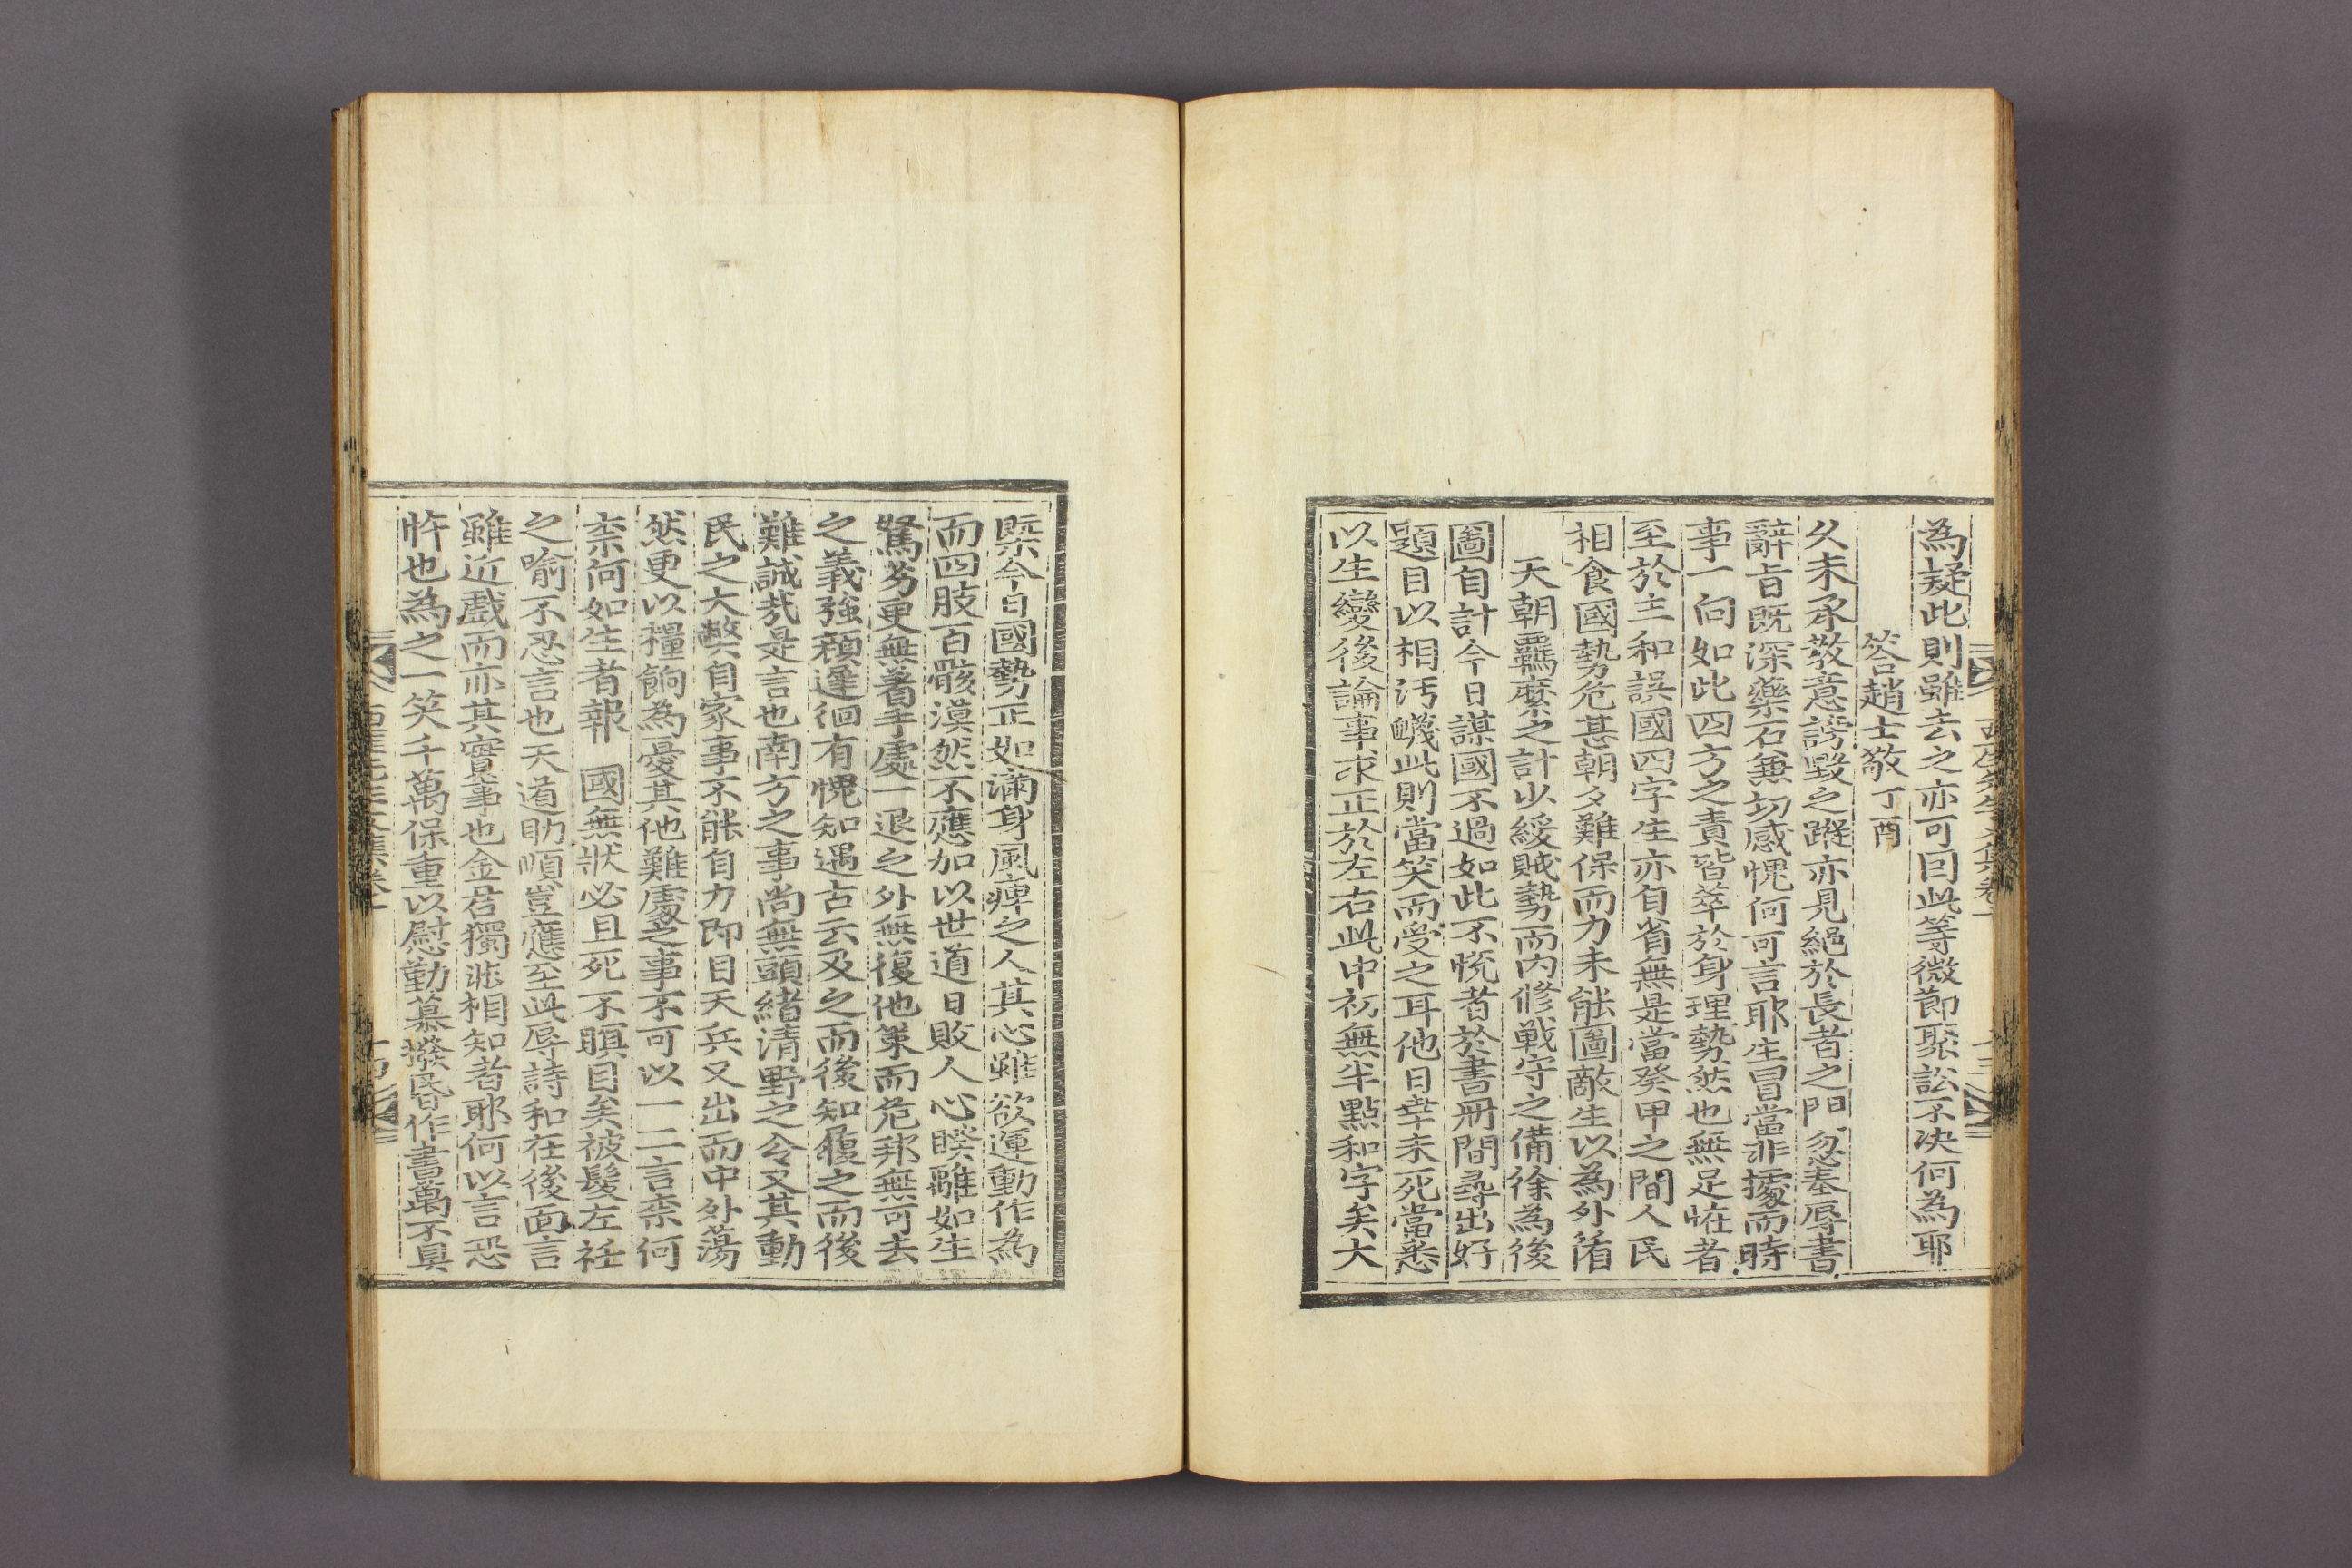 為疑此則雖去之亦可因此等微節聚訟不決何為耶
答趙士敬丁酉
久未承教意謗毀之蹤亦見絕於長者之門忽奉辱書
辭旨旣深藥石兼切感愧何可言耶生冒當非據而時
事一向如此四方之責皆萃於身理勢然也無足怪者
至於主和誤國四字生亦自省無是當癸甲之間人民
相食國勢危甚朝夕難保而力未能圖敵生以為外循
天朝羈縻之計以緩賊勢而內修戰守之備徐為後
圖自計今日謀國不過如此不悅者於書冊間尋出好
題目以相汚衊此則當笑而受之耳他日幸未死當悉
以生變後論事求正於左右此中初無半點和字矣大
槩今日國勢正如滿身風痺之人其心雖欲運動作為
而四肢百骸漠然不應加以世道日敗人心睽離如生
駑劣更無着手處一退之外無復他策而危邦無可去
之義強顏遲徊有愧知遇古云及之而後知履之而後
難誠哉是言也南方之事尚無頭緖淸野之令又其動
民之大弊自家事不能自力即目天兵又出而中外蕩
然更以糧餉為憂其他難處之事不可以一二言柰何
柰何如生者報國無狀必且死不瞑目矣被髮左衽
之喻不忍言也天道助順豈應至此辱詩和在後面言
雖近戲而亦其實事也金君獨非相知者耶何以言恐
忤也為之一笑千萬保重以慰勤慕撥昏作書萬不具
西厓先生文集卷十
西厓先生文集卷十